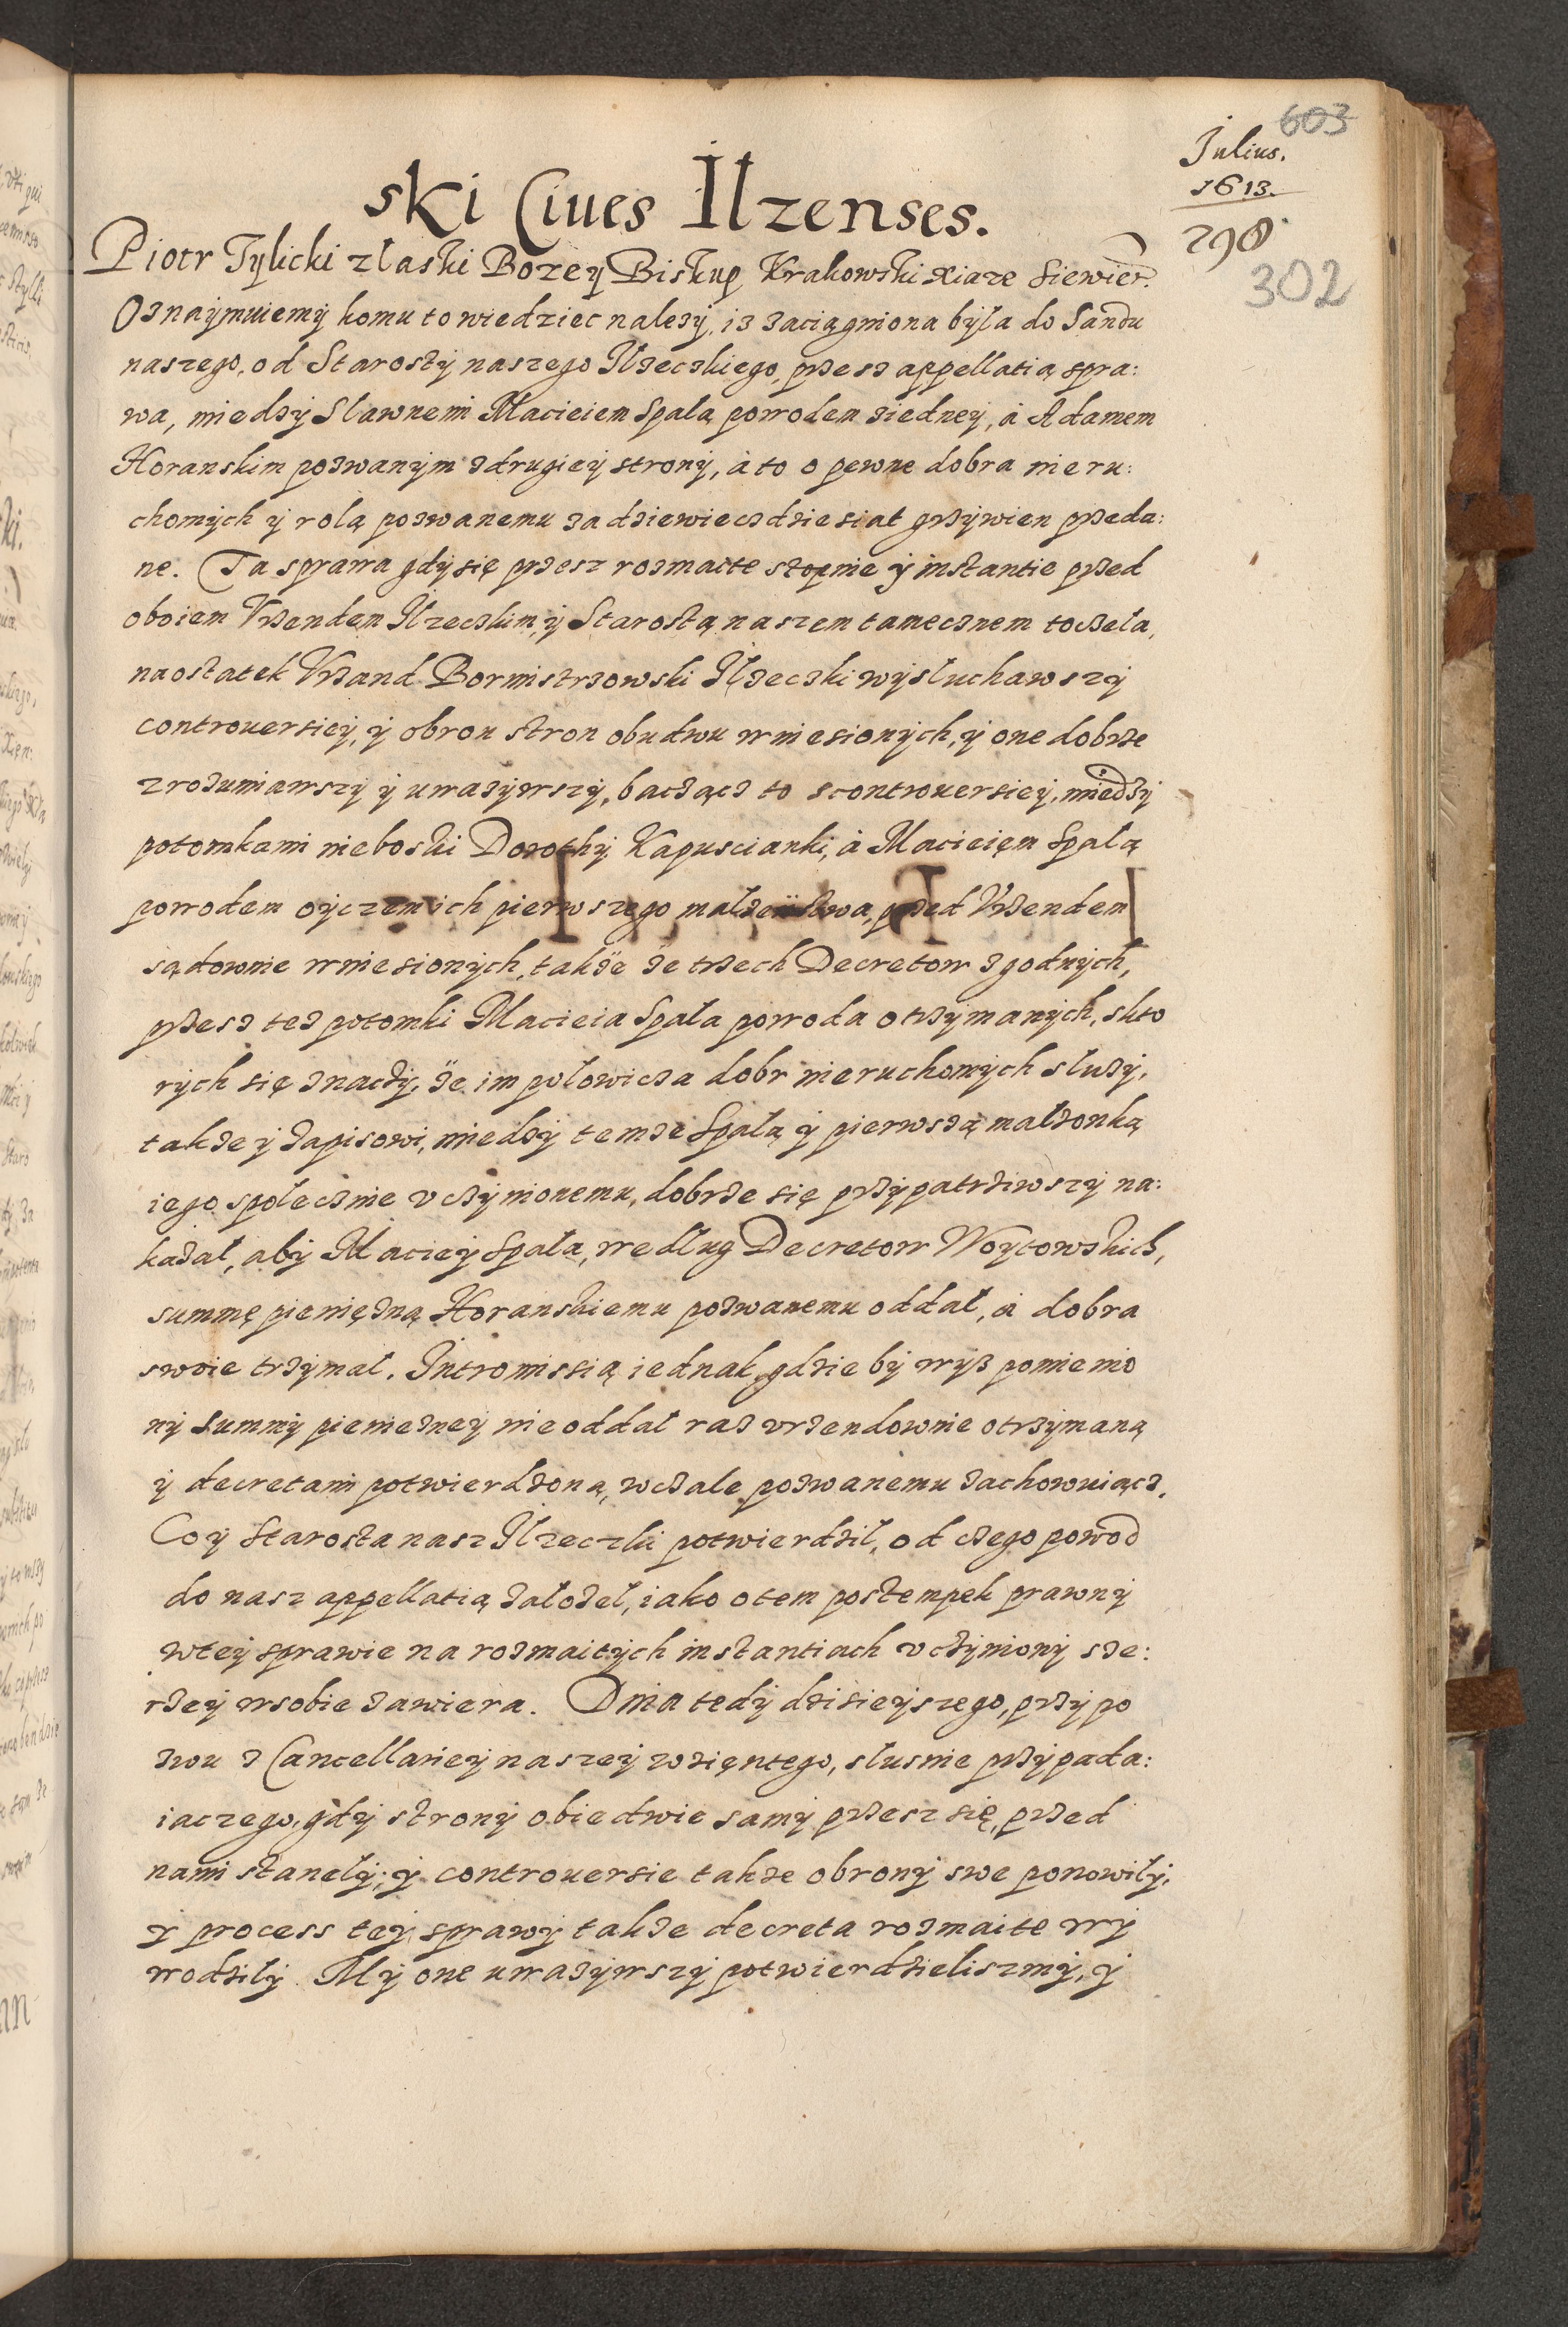 603
Julius.
1613.
298
302
ski Ciues Ilzenses.
Piotr Tylicki z łaski Bozey Biskup Krakowski xiaze Siewier.
Oznaymuiemy komu to wiedziec nalezy, iz zaciągniona była do Sandu
naszego, od Starosty naszego Ilzeczkiego, przez appellatią spra:
wa, miedzy Sławnemi Macieiem Spałą powodem ziedney, à Adamem
Horanskim pozwanym z drugiey strony, à to o pewne dobra nieru:
chomych y rolą pozwanemu za dziewieczdziesiat grzywien przeda:
ne. Ta sprawa gdy się przesz rozmaite stopnie y instantie przed
oboiem Vrzendem Ilzeczkim, y Starostą naszem tamecznem toczeła,
na ostatek Vrzand Bormistrzowski Ilzeczki wysłuchawszy
controuersiey, y obron stron obudwu wniesionych, y one dobrze
zrozumiawszy y uwazywszy, bacząc to z controuersiey, miedzy
potomkami nieboski Dorothy Kapuscianki, à Macieięm Spałą
powodem oyczem ich pierwszego małzenstwa, przed Vrzendem
sądownie wniesionych, takze ze trzech Decretow zgodnych,
przez tez potomki Macieia Spała powoda otrzymanych, skto
rych się znaczy, ze im połowicza dobr nieruchomych słuzy,
takze y zapisowi, miedzy temze Spałą y pierwszą małzonką
iego społecznie vczynionemu, dobrze się przypatrziwszy na:
kazał, aby Maciey Spała, według Decretow Woytowskich,
summę pienięzną Horanskiemu pozwanemu oddał, à dobra
swoie trzymał. Intromissią iednak, gdzie by wyß pomienio
ny summy pieniezney nie oddał raz vrzendownie otrzymaną
y decretami potwierdzoną, wczale pozwanemu zachowuiącz.
Co y Starosta nasz Ilzeczki potwierdził, od czego powod
do nasz appellatią załozeł, iako o tem postempek prawny
wtey sprawie na rozmaitych instantiach vczyniony sze:
rzey wsobie zawiera. Dnia tedy dzisieyszego, przy po
zwu z Cancellariey naszey wzięntego, słusnie przypada:
iaczego, gdy strony obiedwie samy przesz się, przed
nami stanely; y controuersie takze obrony swe ponowiły,
y process tey sprawy takze decreta rozmaite wy
wodziły. My one uwazywszy potwierdzieliszmy, y